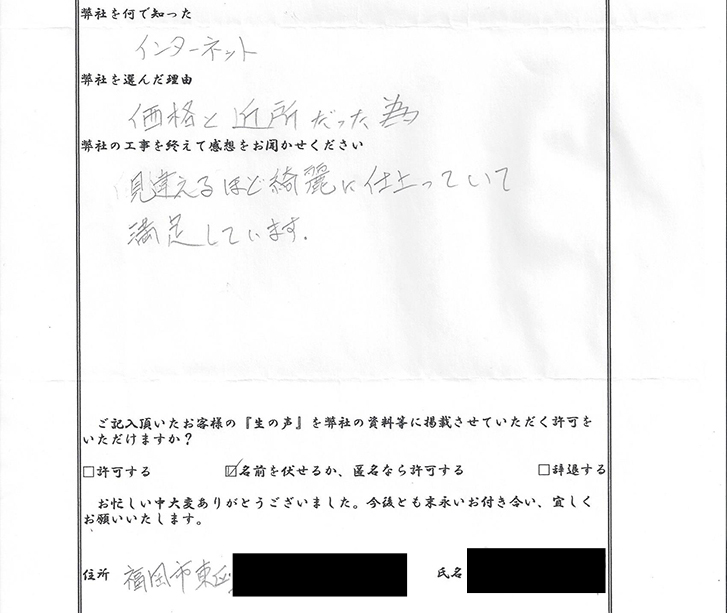 弊社を何で知った
インターネット
弊社を選んだ理由
価格と近所だった為
弊社の工事を終えて感想をお聞かせください
見違えるほど綺麗に仕上っていて
満足しています.
ご記入頂いたお客様の『生の声』を弊社の資料等に掲載させていただく許可を
いただけますか？
□許可する ☑名前を伏せるか、匿名なら許可する □辞退する
お忙しい中大変ありがとうございました。今後とも末永いお付き合い、宜しく
お願いいたします。
住所 福岡市東区 氏名